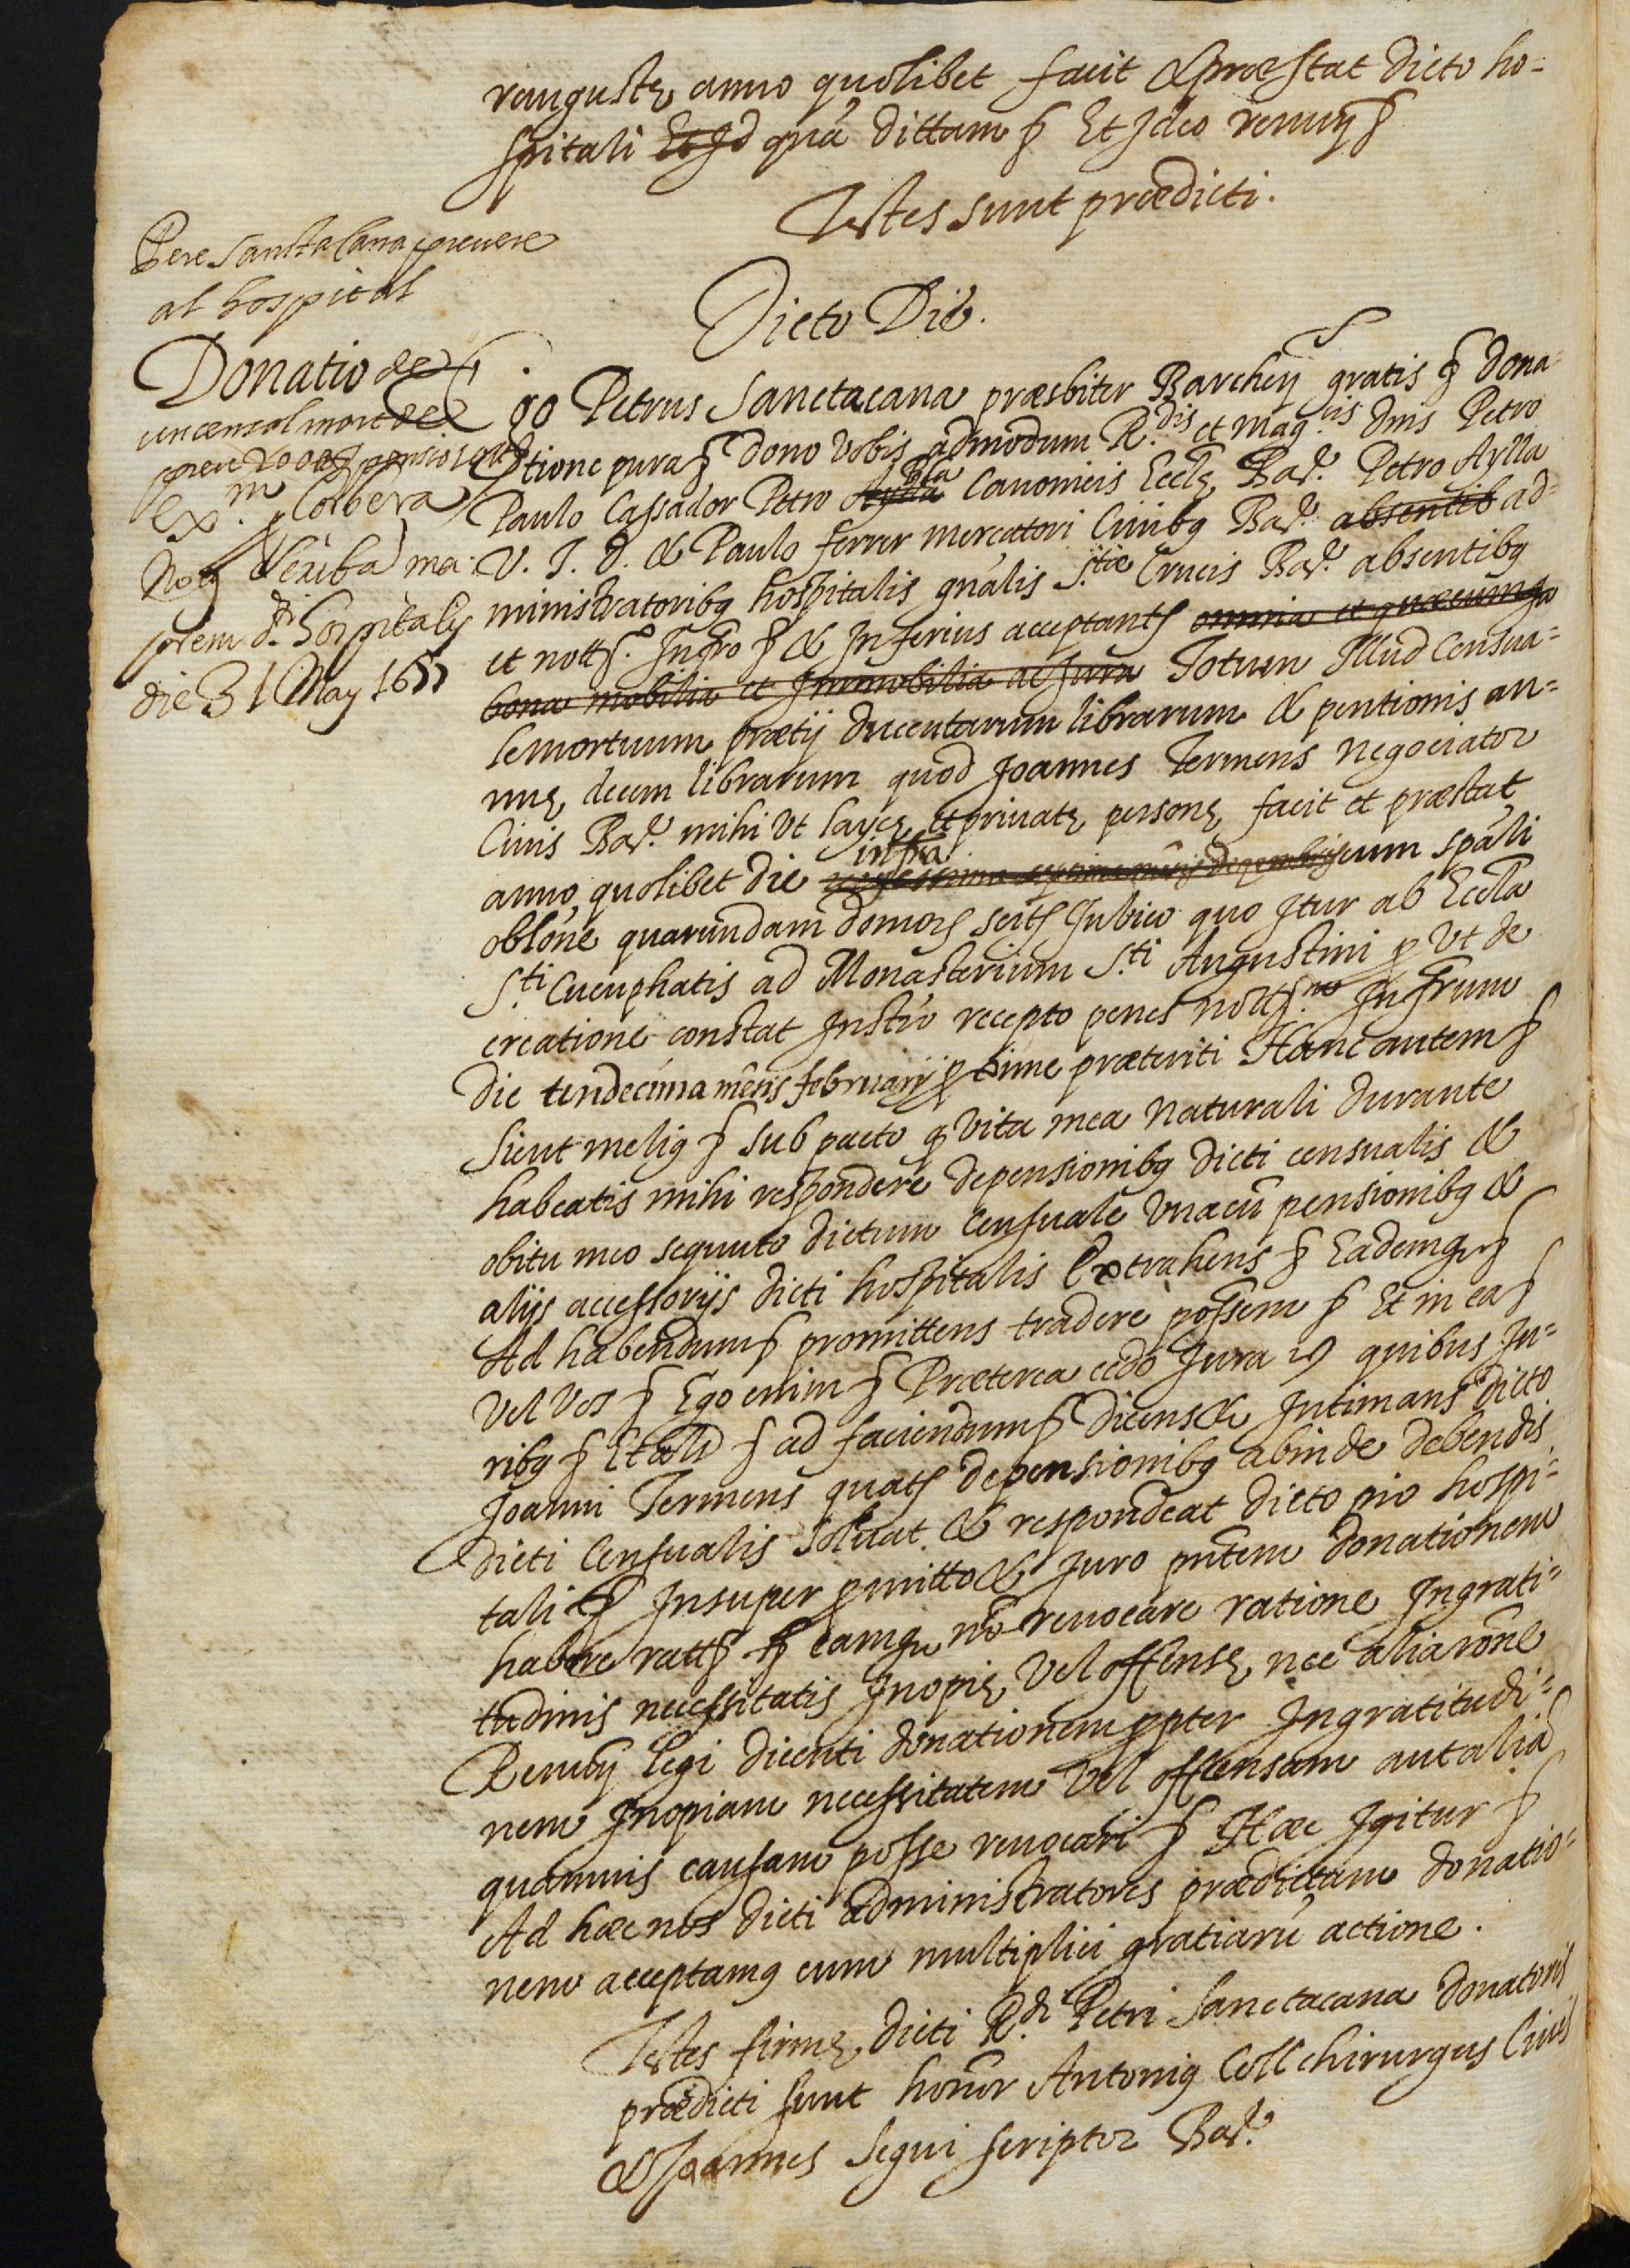 r angustę anno quolibet facit & præstat dicto ho-
spitali Et Id quã dittam ꝭ Et Ideo renuiy ꝭ
Testes sunt prædicti.
Pere Sanctacana prevere
al hospital
Donatio de
un censal mort de
preu 200 ꝭ pensio 10
Ex.m Corbera
Notʒ scriba ma.
jorem d.i Hospitalis
die 31 May 1655
Dicto Die.
Ego Petrus Sanctacana præsbiter Barchenʒ gratis ꝭ dona-
tione pura ꝭ dono vobis admodum R.dis et mag.cis dnis Petro
Paulo Cassador Petro Aylla Pla Canonicis Ecclę Barʒ Petro Aylla
V. J. D. & Paulo ferrer mercatori Civibꝰ Barʒ absentib ad-
ministratoribꝰ hospitalis gnãlis S.tæ Crucis Barʒ absentibꝰ
et nottʒ.o Infro ꝭ & Inferius acceptantʒ omnia et quæcumqe
bona mobilia et Immobilia ac Jura Totum Illud Censua-
le mortuum prætij ducentarum librarum & pentionis an-
nuę decem librarum quod Joannes Termens negociator
Civis Barʒ mihi Vt layce et privatę personę facit et præstat
anno quolibet die infra cum spãli
oblõne quarundam domorʒ sitʒ In vico quo Itur ab Eccla
S.ti Cucuphatis ad Monasterium S.ti Augustini ꝓ Vt de
creatione constat Instro recepto penes nottʒ.m Infrum
die tendecima mensis februarij ꝓxime præteriti Hanc autem ꝭ
Sicut meliꝰ ꝭ sub pacto qꝫ vita mea naturali durante
habeatis mihi respondere de pensionibꝰ dicti censualis &
obitu meo sequuto dictum Censuale vnacũ pensionibꝰ &
alijs accessorijs dicti hospitalis Extrahens ꝭ Eademqe ꝭ
Ad habendum ꝭ promittens tradere possem ꝭ Et in ea ꝭ
Vel vos ꝭ Ego enim ꝭ Præterea cedo Jura ꝭ quibus Ju-
ribꝰ ꝭ Et alÿ ꝭ ad faciendum ꝭ Dicens & Intimans dicto
Joanni Termens quatʒ de pensionibꝰ abinde debendis
dicti Censualis solvat & respondeat dicto pio hospi-
tali ꝭ Insuper ꝓmitto & Juro pñtem donationem
habere rattʒ ꝭ eamqe nõ revocare ratione Ingrati-
tudinis necessitatis Inopię Vel offensę nec alia rõne
Renuiy legi dicenti donationem ꝓpter Ingratitudi-
nem Inopiam necessitatem Vel offensam aut aliã
quamvis causam posse revocari ꝭ Hæc Igitur ꝭ
Ad hæc nos dicti administratores prædictam donatio-
nem acceptamꝰ cum multiplici gratiarũ actione.
Testes firmę dicti R.di Petri Sanctacana donatoris
prædicti sunt honor Antoniꝰ Coll chirurgus Civis
& Joannes Segui scriptor Barʒ